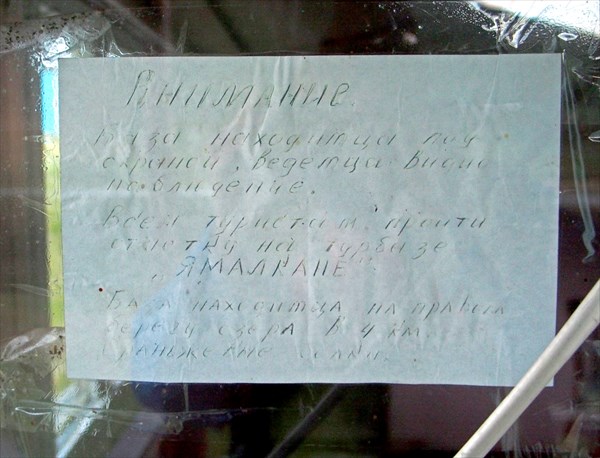 Внимание.
База находитца под
охраной, ведетца видио
наблюдение.
Всем туристам проити
отметку на турбазе
„ЯМАЛКАПЕ"
База находитца на правом
берегу озера в 4 км.